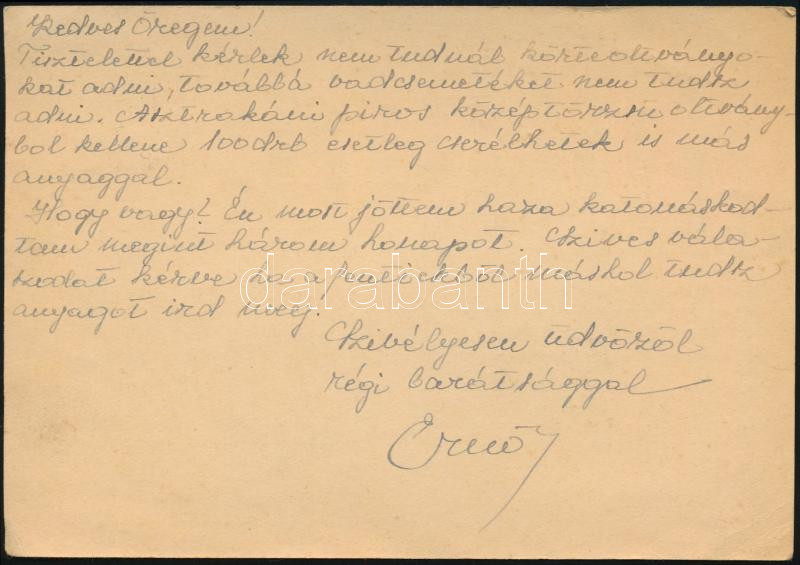 Kedves Öregem!
Tisztelettel kérlek nem tudnál körteoltványo-
kat adni, továbbá vadcsemetéket nem tudsz
adni. Asztrakáni piros középtörzsü oltvány-
ból kellene 100 drb esetleg cserélhetek is más
anyaggal.
Hogy vagy? Én most jöttem haza katonáskod-
tam megint három honapot. Szives vála-
szodat kérve ha a fentiekből máshol tudsz
anyagot ird meg.
Szivélyesen üdvözöl
régi barátsággal
Ernő
darabanth